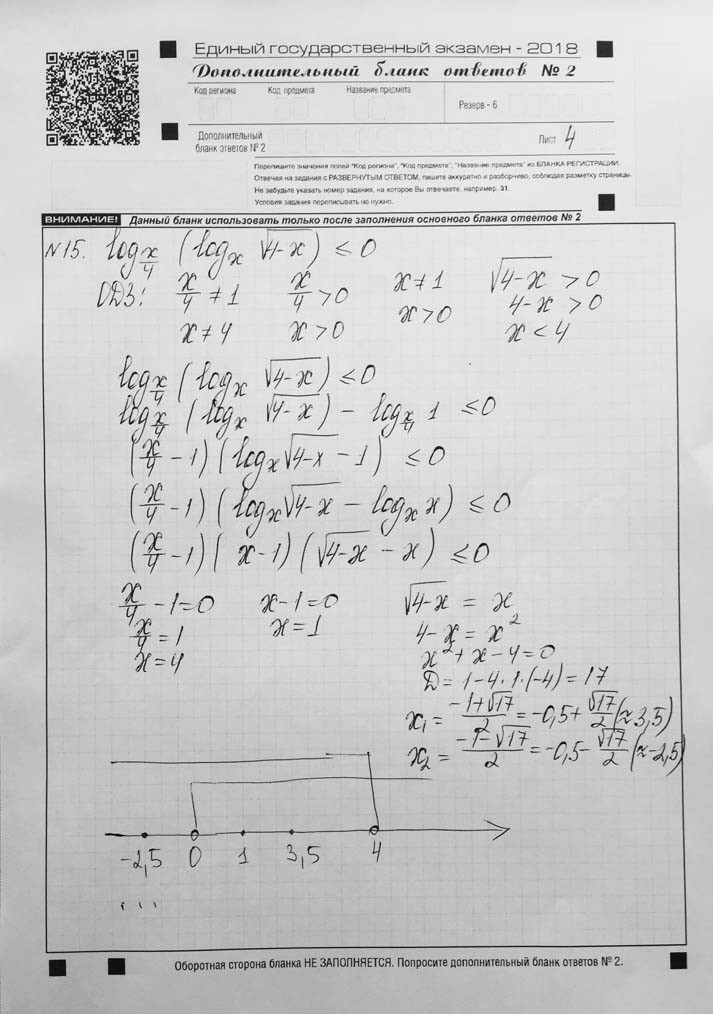 Единый государственный экзамен - 2018
Дополнительный бланк ответов № 2
Код региона Код предмета Название предмета
Резерв - 6
Дополнительный
бланк ответов № 2
Лист 4
Перепишите значения полей "Код региона", "Код предмета", "Название предмета" из БЛАНКА РЕГИСТРАЦИИ.
Отвечая на задания с РАЗВЕРНУТЫМ ОТВЕТОМ, пишите аккуратно и разборчиво, соблюдая разметку страницы.
Не забудьте указать номер задания, на которое Вы отвечаете, например, 31.
Условия задания переписывать не нужно.
ВНИМАНИЕ! Данный бланк использовать только после заполнения основного бланка ответов № 2
№15. log_{x/4} (log_x √(4-x)) ≤ 0
ОДЗ: x/4 ≠ 1 x/4 > 0 x ≠ 1 √(4-x) > 0
x ≠ 4 x > 0 x > 0 4-x > 0
x < 4
log_{x/4} (log_x √(4-x)) ≤ 0
log_{x/4} (log_x √(4-x)) - log_{x/4} 1 ≤ 0
(x/4 - 1) (log_x √(4-x) - 1) ≤ 0
(x/4 - 1) (log_x √(4-x) - log_x x) ≤ 0
(x/4 - 1) (x-1) (√(4-x) - x) ≤ 0
x/4 - 1 = 0 x-1=0 √(4-x) = x
x/4 = 1 x=1 4-x = x²
x = 4 x² + x - 4 = 0
D = 1-4·1·(-4) = 17
x₁ = (-1+√17)/2 = -0,5 + √17/2 (≈3,5)
x₂ = (-1-√17)/2 = -0,5 - √17/2 (≈-2,5)
-2,5 0 1 3,5 4
...
Оборотная сторона бланка НЕ ЗАПОЛНЯЕТСЯ. Попросите дополнительный бланк ответов № 2.